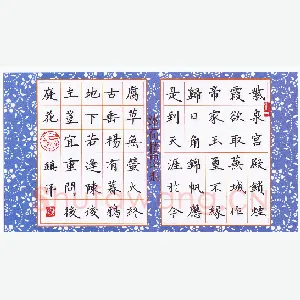 紫泉宮殿鎖煙
霞欲取蕪城作
帝家玉璽不緣
歸日角錦帆應
是到天涯於今
腐草無螢火終
古垂楊有暮鴉
地下若逢陳後
主豈宜重問後
庭花
Shufawang.CN